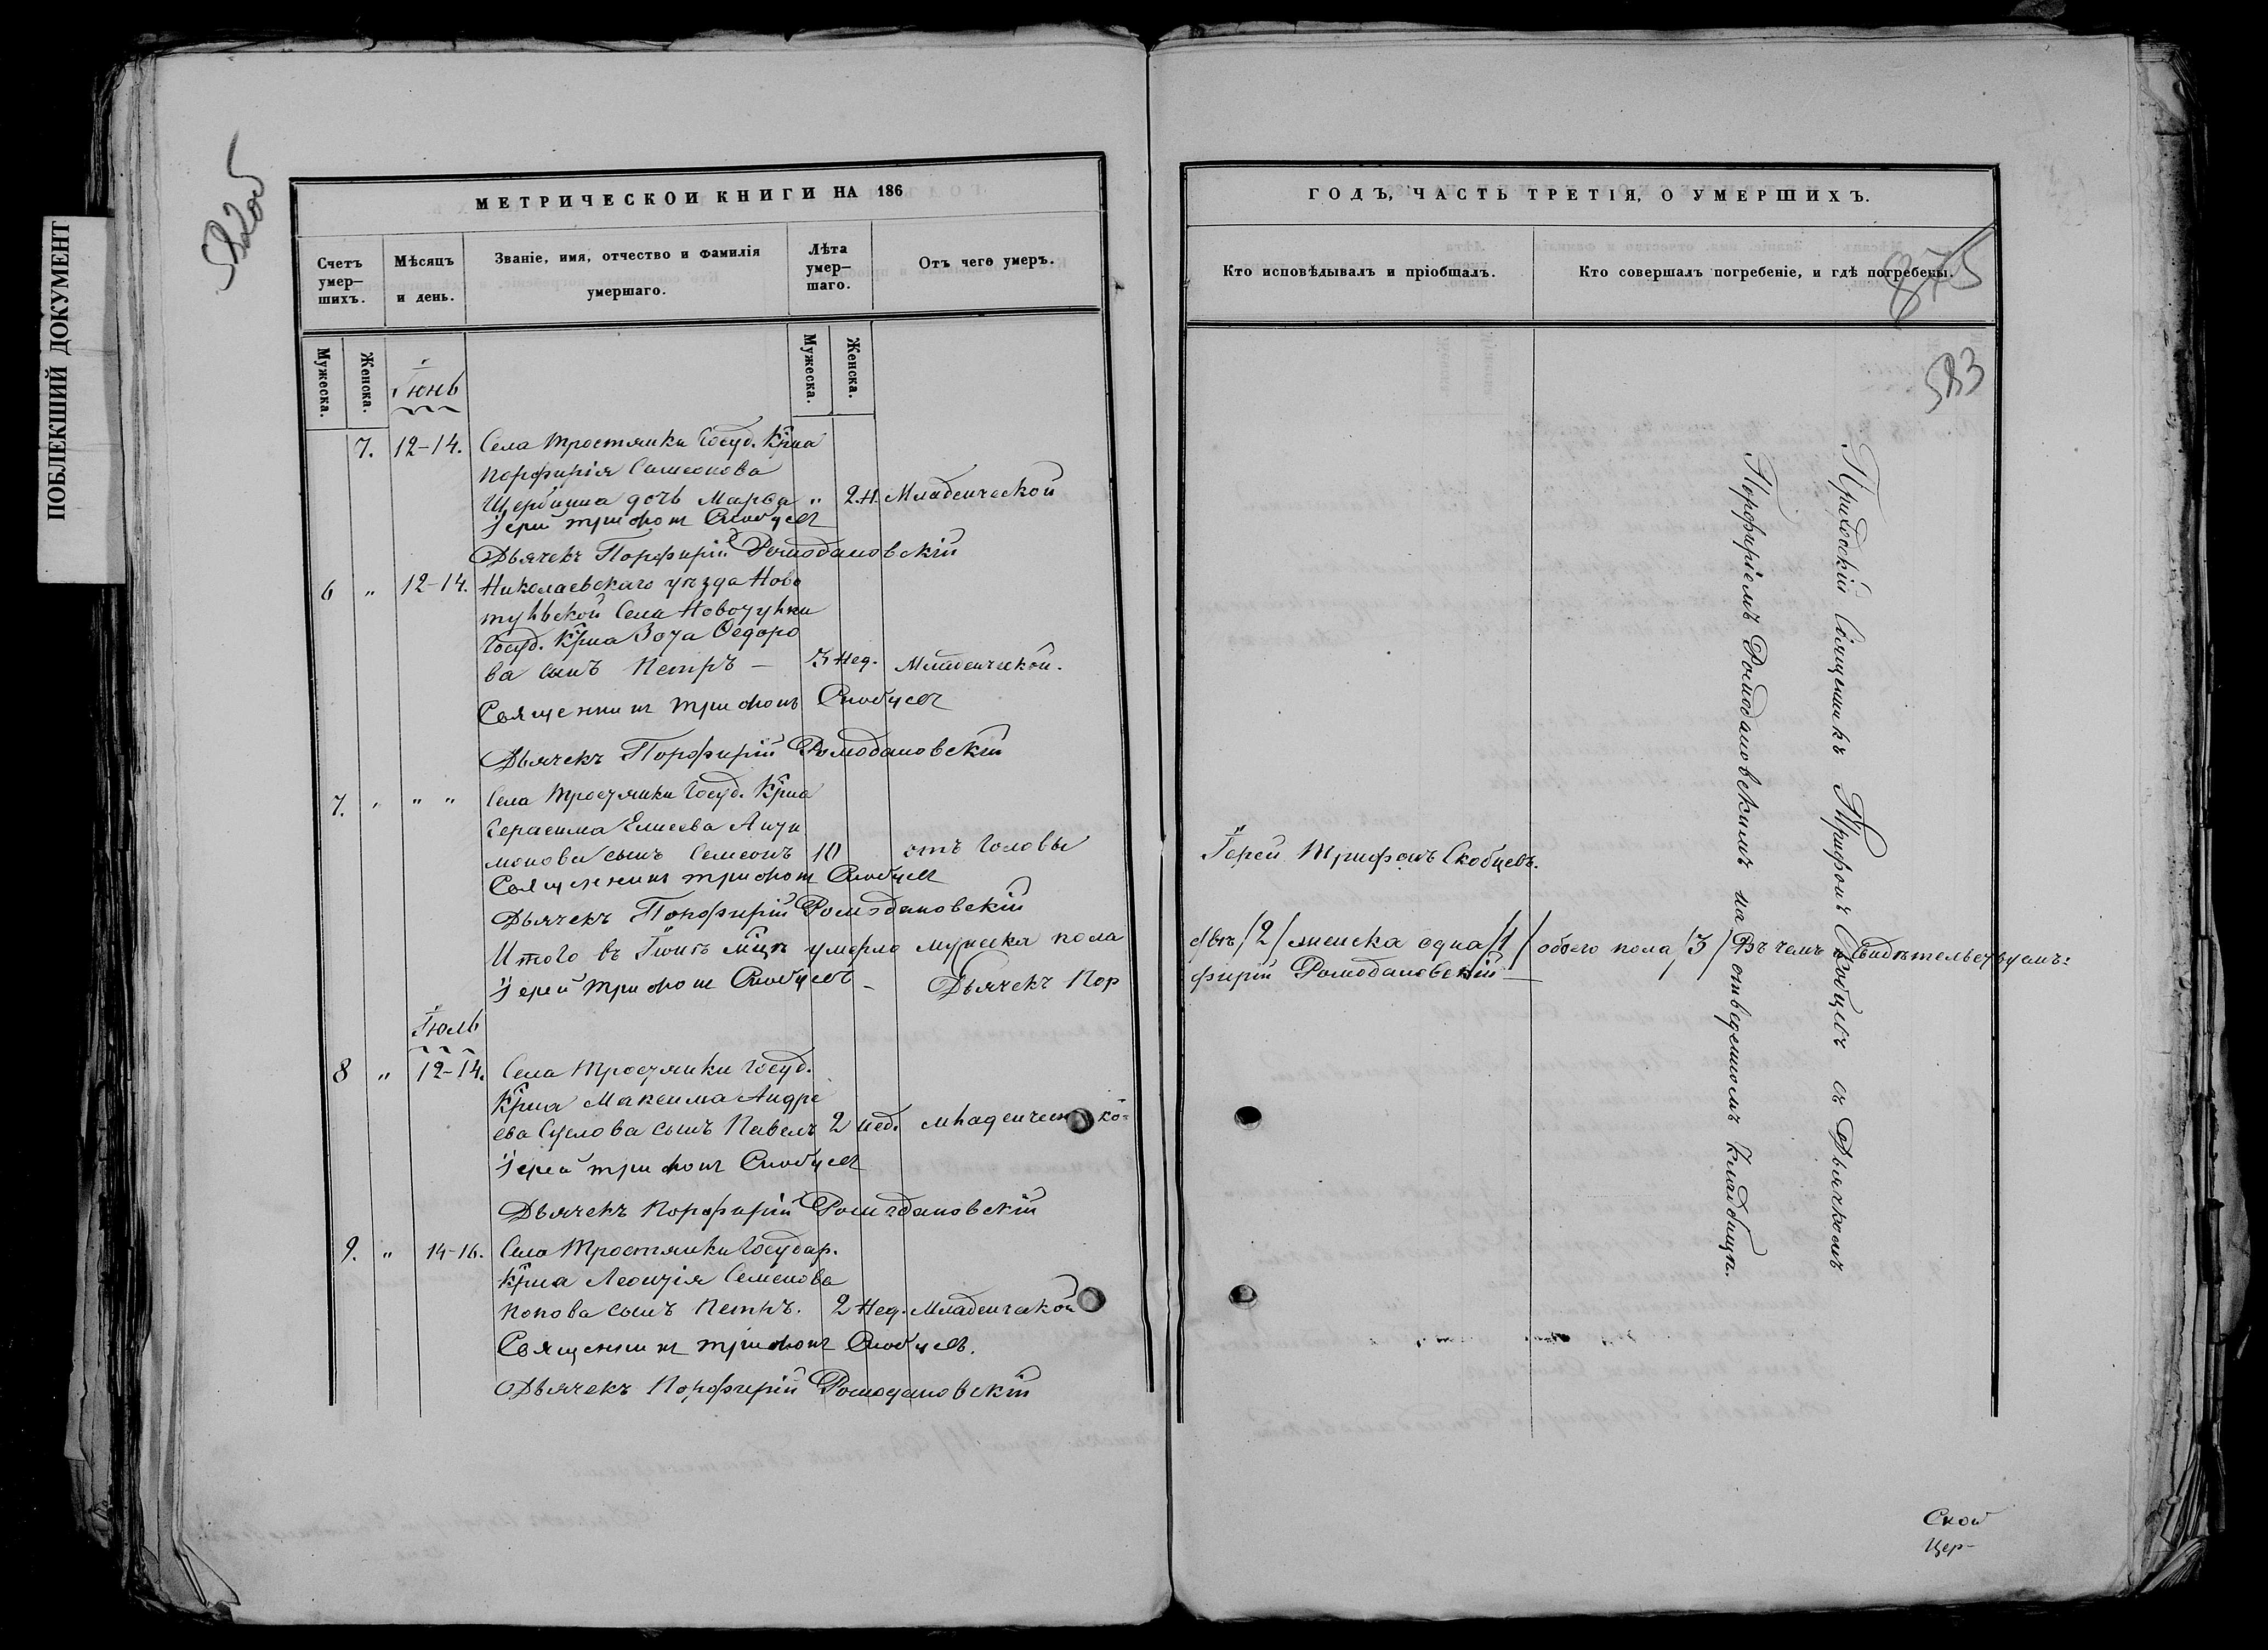 ПОБЛЕКШИЙ ДОКУМЕНТ
МЕТРИЧЕСКОЙ КНИГИ НА 186
Счетъ умер-шихъ.
Мѣсяцъ и день.
Званіе, имя, отчество и фамилія умершаго.
Лѣта умер-шаго.
Отъ чего умеръ.
Мужеска.
Женска.
Мужеска.
Женска.
Іюнь
7. 12-14. Села Тростянки Госуд. Крна
Порфирія Симеонова
Щербинина дочь Марѳа " 2.н. Младенческой
Іерей Трифонъ Скобцевъ
Дьячекъ Порфирій Ромодановскій
6 " 12-14. Николаевскаго уѣзда Ново
тульской Села Новотулки
Госуд. Крна Зота Ѳедоро
ва сынъ Петръ — 3 нед. Младенческой.
Священникъ Трифонъ Скобцевъ
Дьячекъ Порфирій Ромодановскій
7. " " " Села Тростянки Госуд. Крна
Герасима Елисева
сынъ Семеонъ 10 отъ Головы
Священникъ Трифонъ Скобцевъ
Дьячекъ Порфирій Ромодановскій
Итого въ Іюнѣ мцѣ умерло мужеска пола
Іерей Трифонъ Скобцевъ — Дьячекъ Пор
Іюль
8 " 12-14. Села Тростянки Госуд.
Крна Максима Андре
ева сынъ Павелъ 2 нед. младенческо-
Іерей Трифонъ Скобцевъ
Дьячекъ Порфирій Ромодановскій
9. " 14-16. Села Тростянки Государ.
Крна Леонтія Семенова
Попова сынъ Петръ. 2 нед. Младенческой
Священникъ Трифонъ Скобцевъ.
Дьячекъ Порфирій Ромодановскій
ГОДЪ, ЧАСТЬ ТРЕТІЯ, О УМЕРШИХЪ.
Кто исповѣдывалъ и пріобщалъ.
Кто совершалъ погребеніе, и гдѣ погребены.
875
583
Іерей Трифонъ Скобцевъ.
двѣ /2/ женска одна /1/ обоего пола /3/ Въ чемъ свидѣтельствуемъ:
фирій Ромодановскій —
Приходскій Священникъ Трифонъ Скобцевъ съ Дьячкомъ
Порфиріемъ Ромодановскимъ на отведенномъ кладбищѣ.
Скоб
Цер-